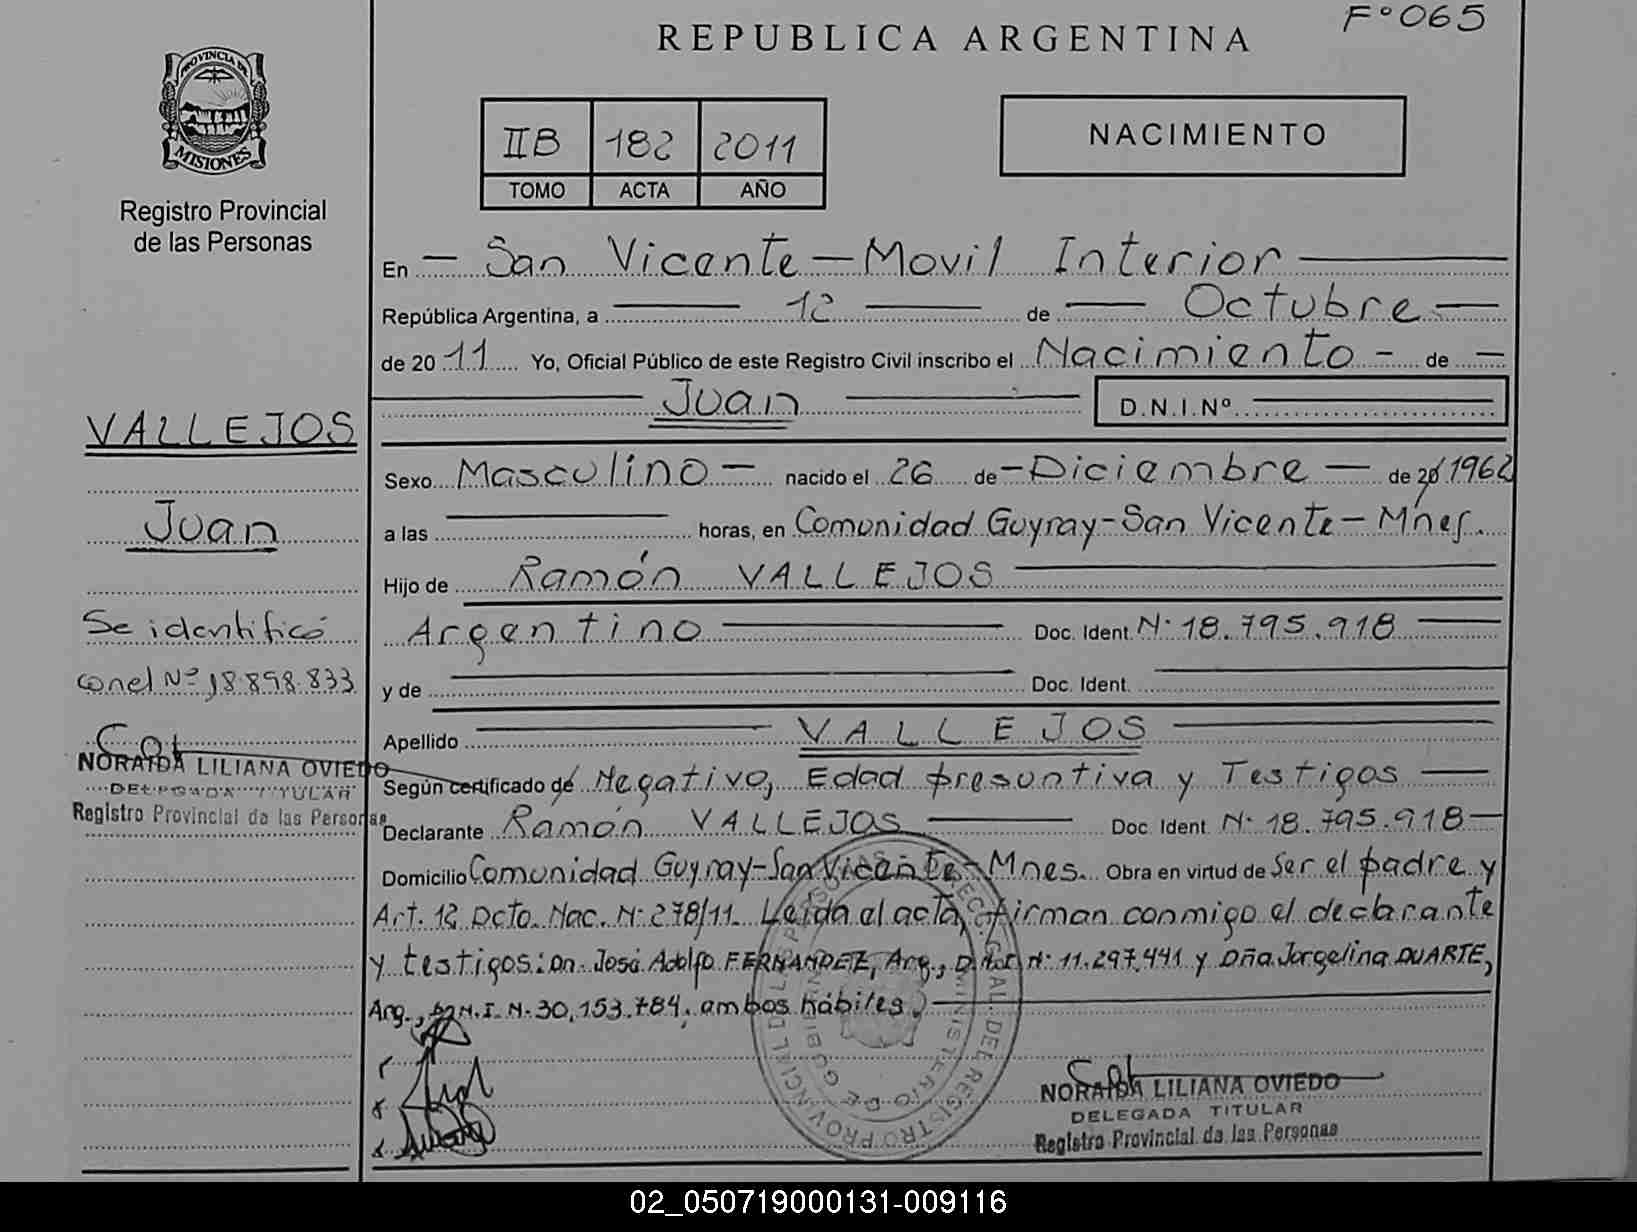 F° 065
REPUBLICA ARGENTINA
PROVINCIA DE
MISIONES
Registro Provincial
de las Personas
IIB 182 2011
TOMO ACTA AÑO
NACIMIENTO
En — San Vicente — Movil Interior
República Argentina, a 12 de Octubre
de 2011 Yo, Oficial Público de este Registro Civil inscribo el Nacimiento - de -
Juan D.N.I.Nº
VALLEJOS
Juan
Se identificó
con el Nº 18.898.833
NORAIDA LILIANA OVIEDO
DELEGADA TITULAR
Registro Provincial de las Personas
Sexo Masculino — nacido el 26 de — Diciembre — de 20 1962
a las horas, en Comunidad Guyray-San Vicente - Mnes.
Hijo de Ramón VALLEJOS
Argentino Doc. Ident. N· 18.795.918
y de Doc. Ident.
Apellido VALLEJOS
Según certificado de Negativo, Edad presuntiva y Testigos
Declarante Ramón VALLEJOS Doc. Ident. N· 18.795.918
Domicilio Comunidad Guyray-San Vicente - Mnes. Obra en virtud de Ser el padre y
Art. 12 Dcto. Nac. N· 278/11. Leida el acta, firman conmigo el declarante
y testigos: Dn. José Adolfo FERNANDEZ, Arg., N· 11.297.441 y Dña Jorgelina DUARTE,
Arg., D.N.I. N· 30.153.784, ambos hábiles.
NORAIDA LILIANA OVIEDO
DELEGADA TITULAR
Registro Provincial de las Personas
02_050719000131-009116